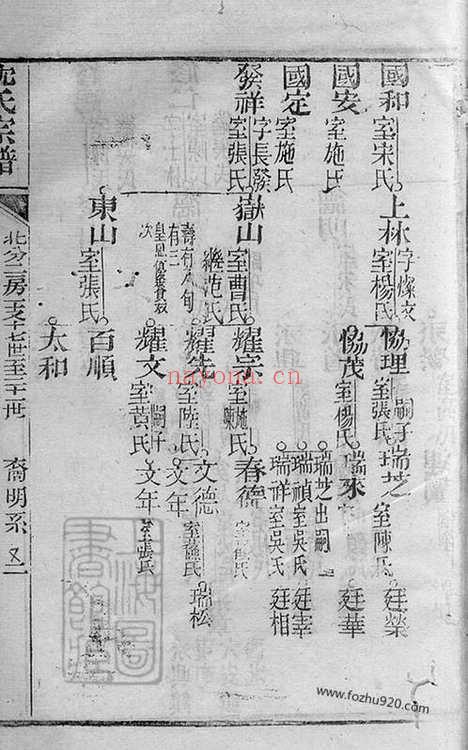 國和
室宋氏
上林
字燦文
室楊氏
協理
室張氏
嗣子瑞芝
室陳氏
廷榮
國安
室施氏
協茂
室楊氏
瑞來
室
廷華
國定
室施氏
瑞芝出嗣
瑞禎
室吳氏
廷宰
瑞祥
室吳氏
廷相
發祥
字長發
室張氏
嶽山
室曹氏
繼范氏
壽有八旬
有三
皇恩
次
耀宗
室施氏
陳
春德
室
氏
耀先
室陸氏
文德
室
氏
瑞松
文年
耀文
室黄氏
嗣子
文年
室張氏
東山
室張氏
百順
太和
氏宗譜
北分二房支十七世至二十世
裔明系
又一
上海圖書館藏
nayona.com
www.fozhu920.com